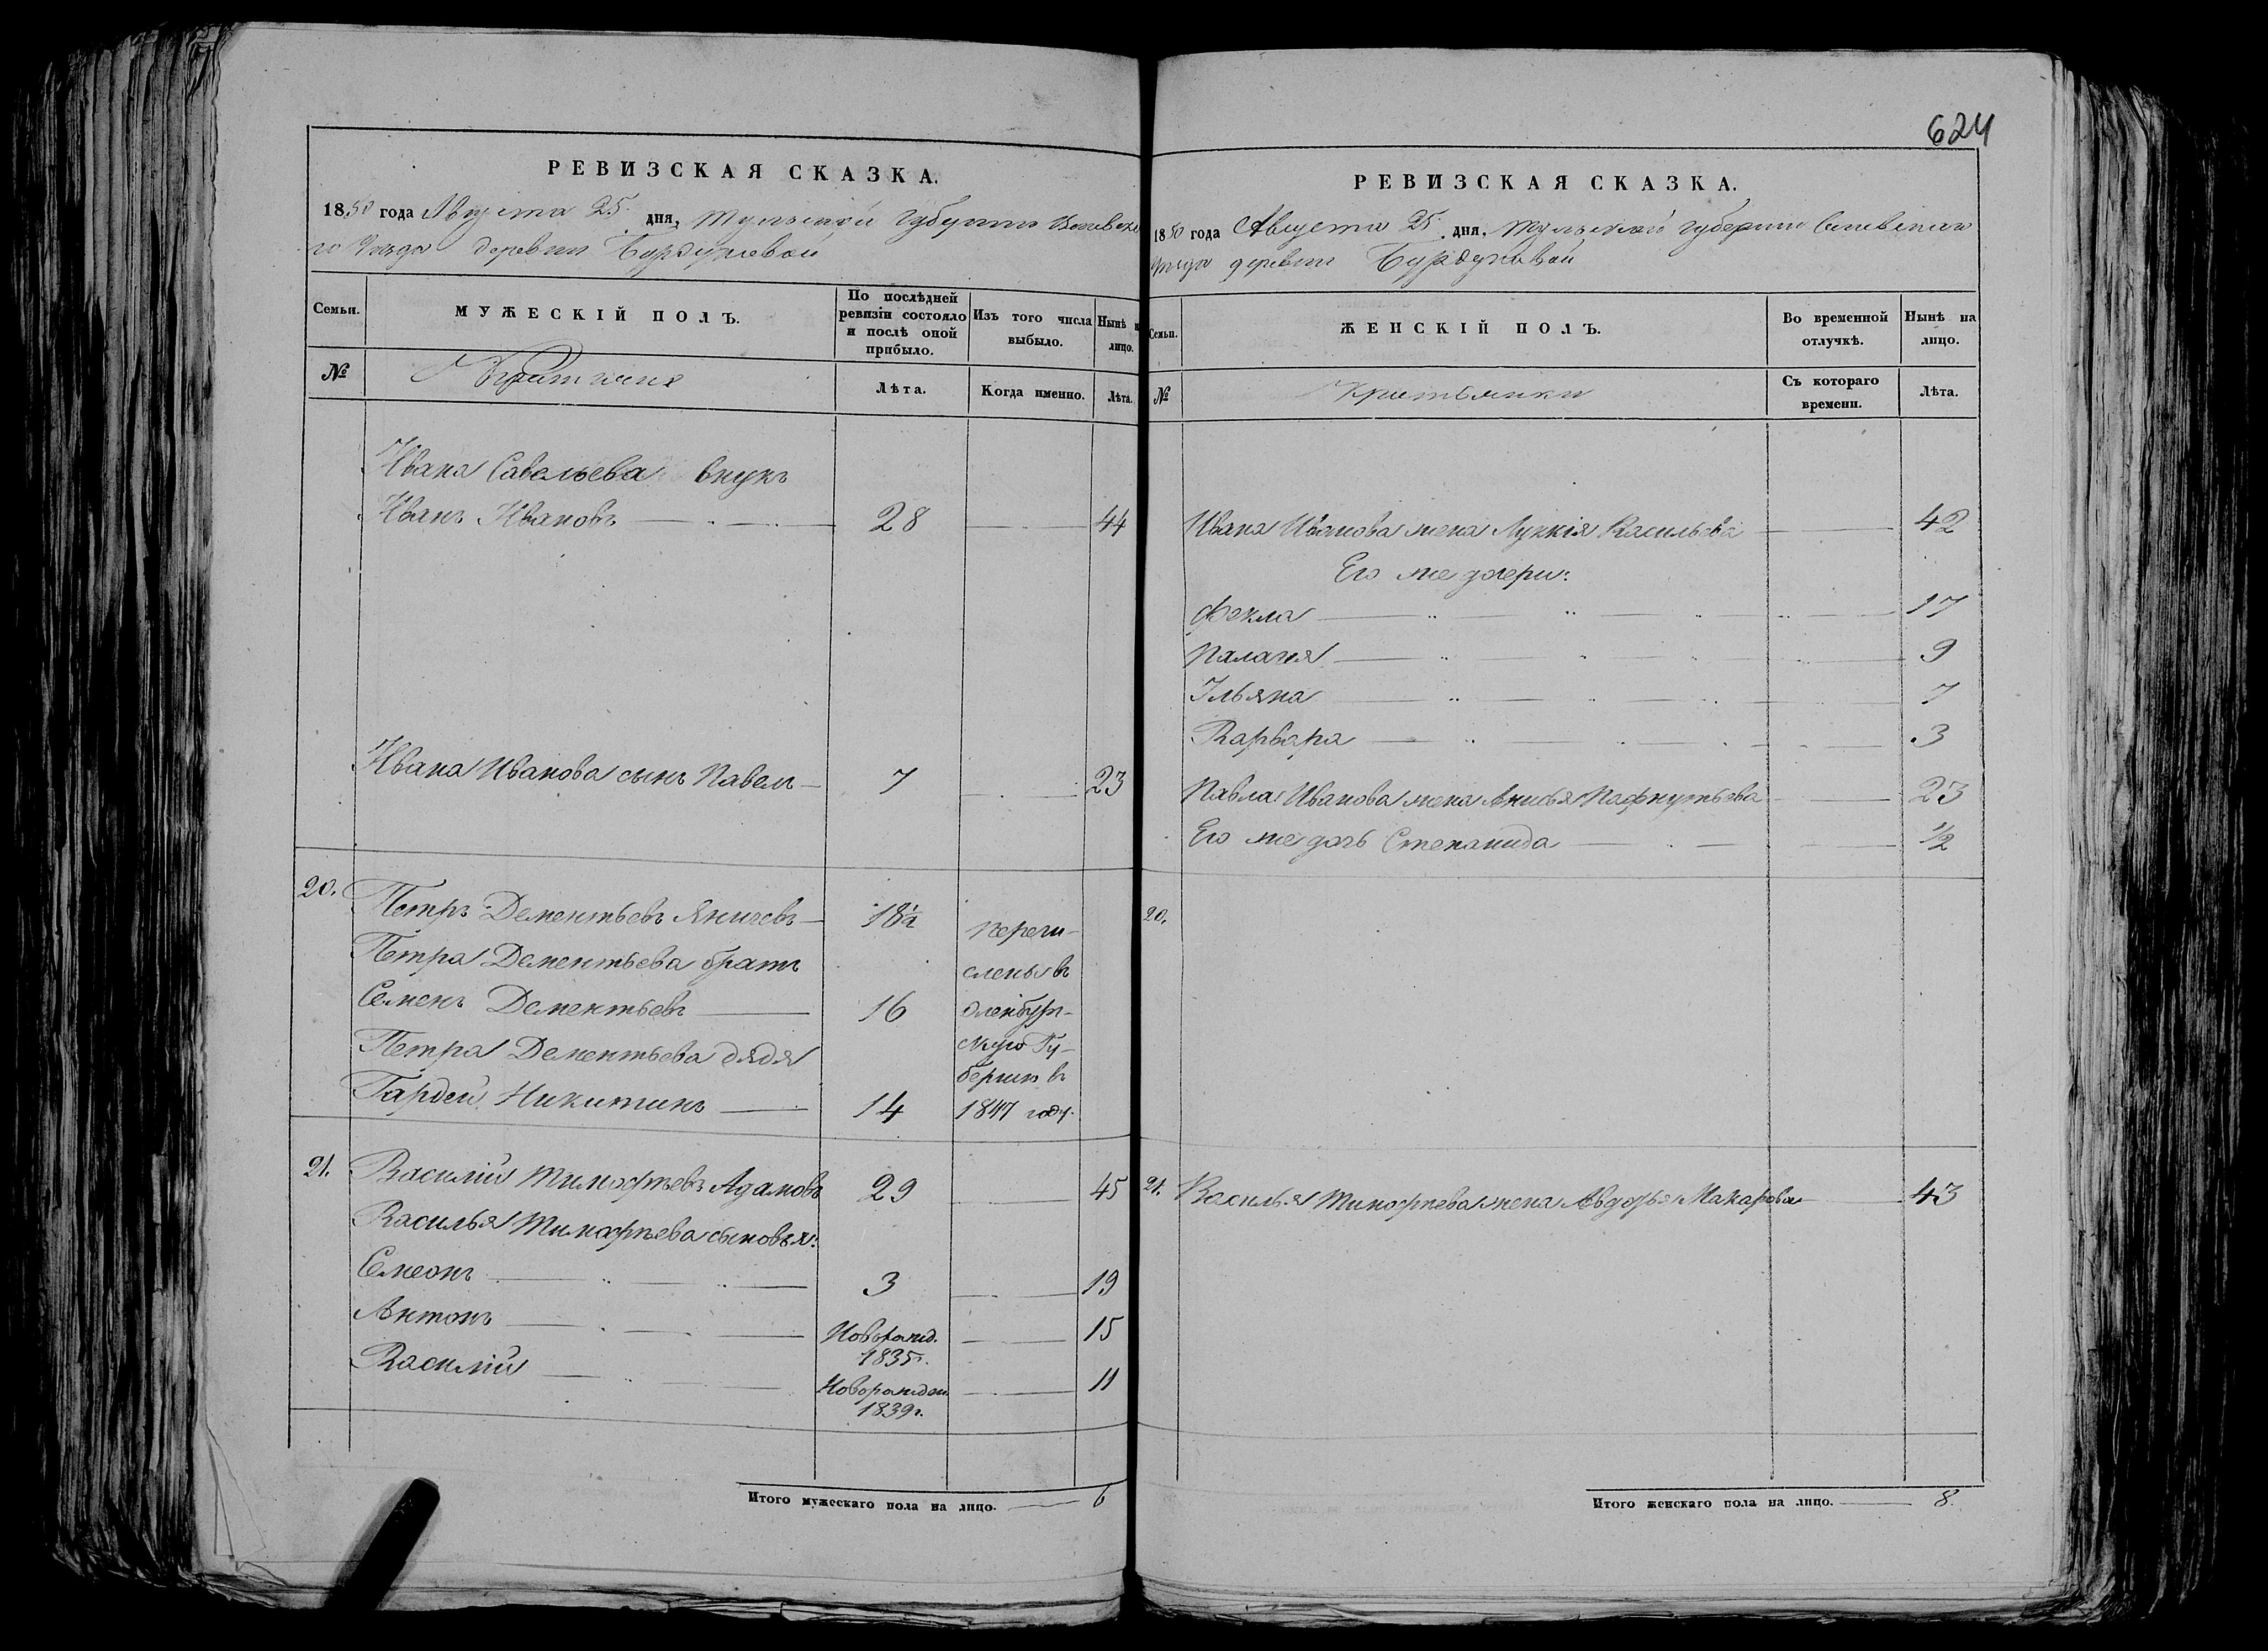 РЕВИЗСКАЯ СКАЗКА.
1850 года Августа 25 дня, Тульской Губернии
го Уезда деревни Бурдуковой
Семьи. МУЖЕСКІЙ ПОЛЪ. По послѣдней ревизіи состояло и послѣ оной прибыло. Изъ того числа выбыло. Нынѣ н лицо.
№ Крестьяне Лѣта. Когда именно. Лѣта.
Ивана Савельева внукъ
Иванъ Ивановъ 28 44
Ивана Иванова сынъ Павелъ 7 23
20. Петръ Дементьевъ 18½ Перечи-
Петра Дементьева братъ слены въ
Семенъ Дементьевъ 16 Оленбург-
Петра Дементьева дядя скую Гу-
бернию въ
Гардей Никитинъ 14 1847 году.
21. Василій Тимофѣевъ Адамовъ 29 45
Василья Тимофѣева сыновья:
Семеонъ 3 19
Антонъ Новорожд. 15
1835г.
Василій Новорожден. 11
1839г.
Итого мужескаго пола на лицо. 6
624
РЕВИЗСКАЯ СКАЗКА.
1850 года Августа 25 дня, Тульской Губернии
Уезда деревни Бурдуковой
Семьи. ЖЕНСКІЙ ПОЛЪ. Во временной отлучкѣ. Нынѣ на лицо.
№ Крестьянки Съ котораго времени. Лѣта.
Ивана Иванова жена Луккія Васильева 42
Его же дочери:
Фекла 17
Палагея 9
Ульяна 7
Варвара 3
Павла Иванова жена Анисья Пафнутьева 23
Его же дочь Степанида ½
20.
21. Василья Тимофѣева жена Авдотья Макарова 43
Итого женскаго пола на лицо. 8.